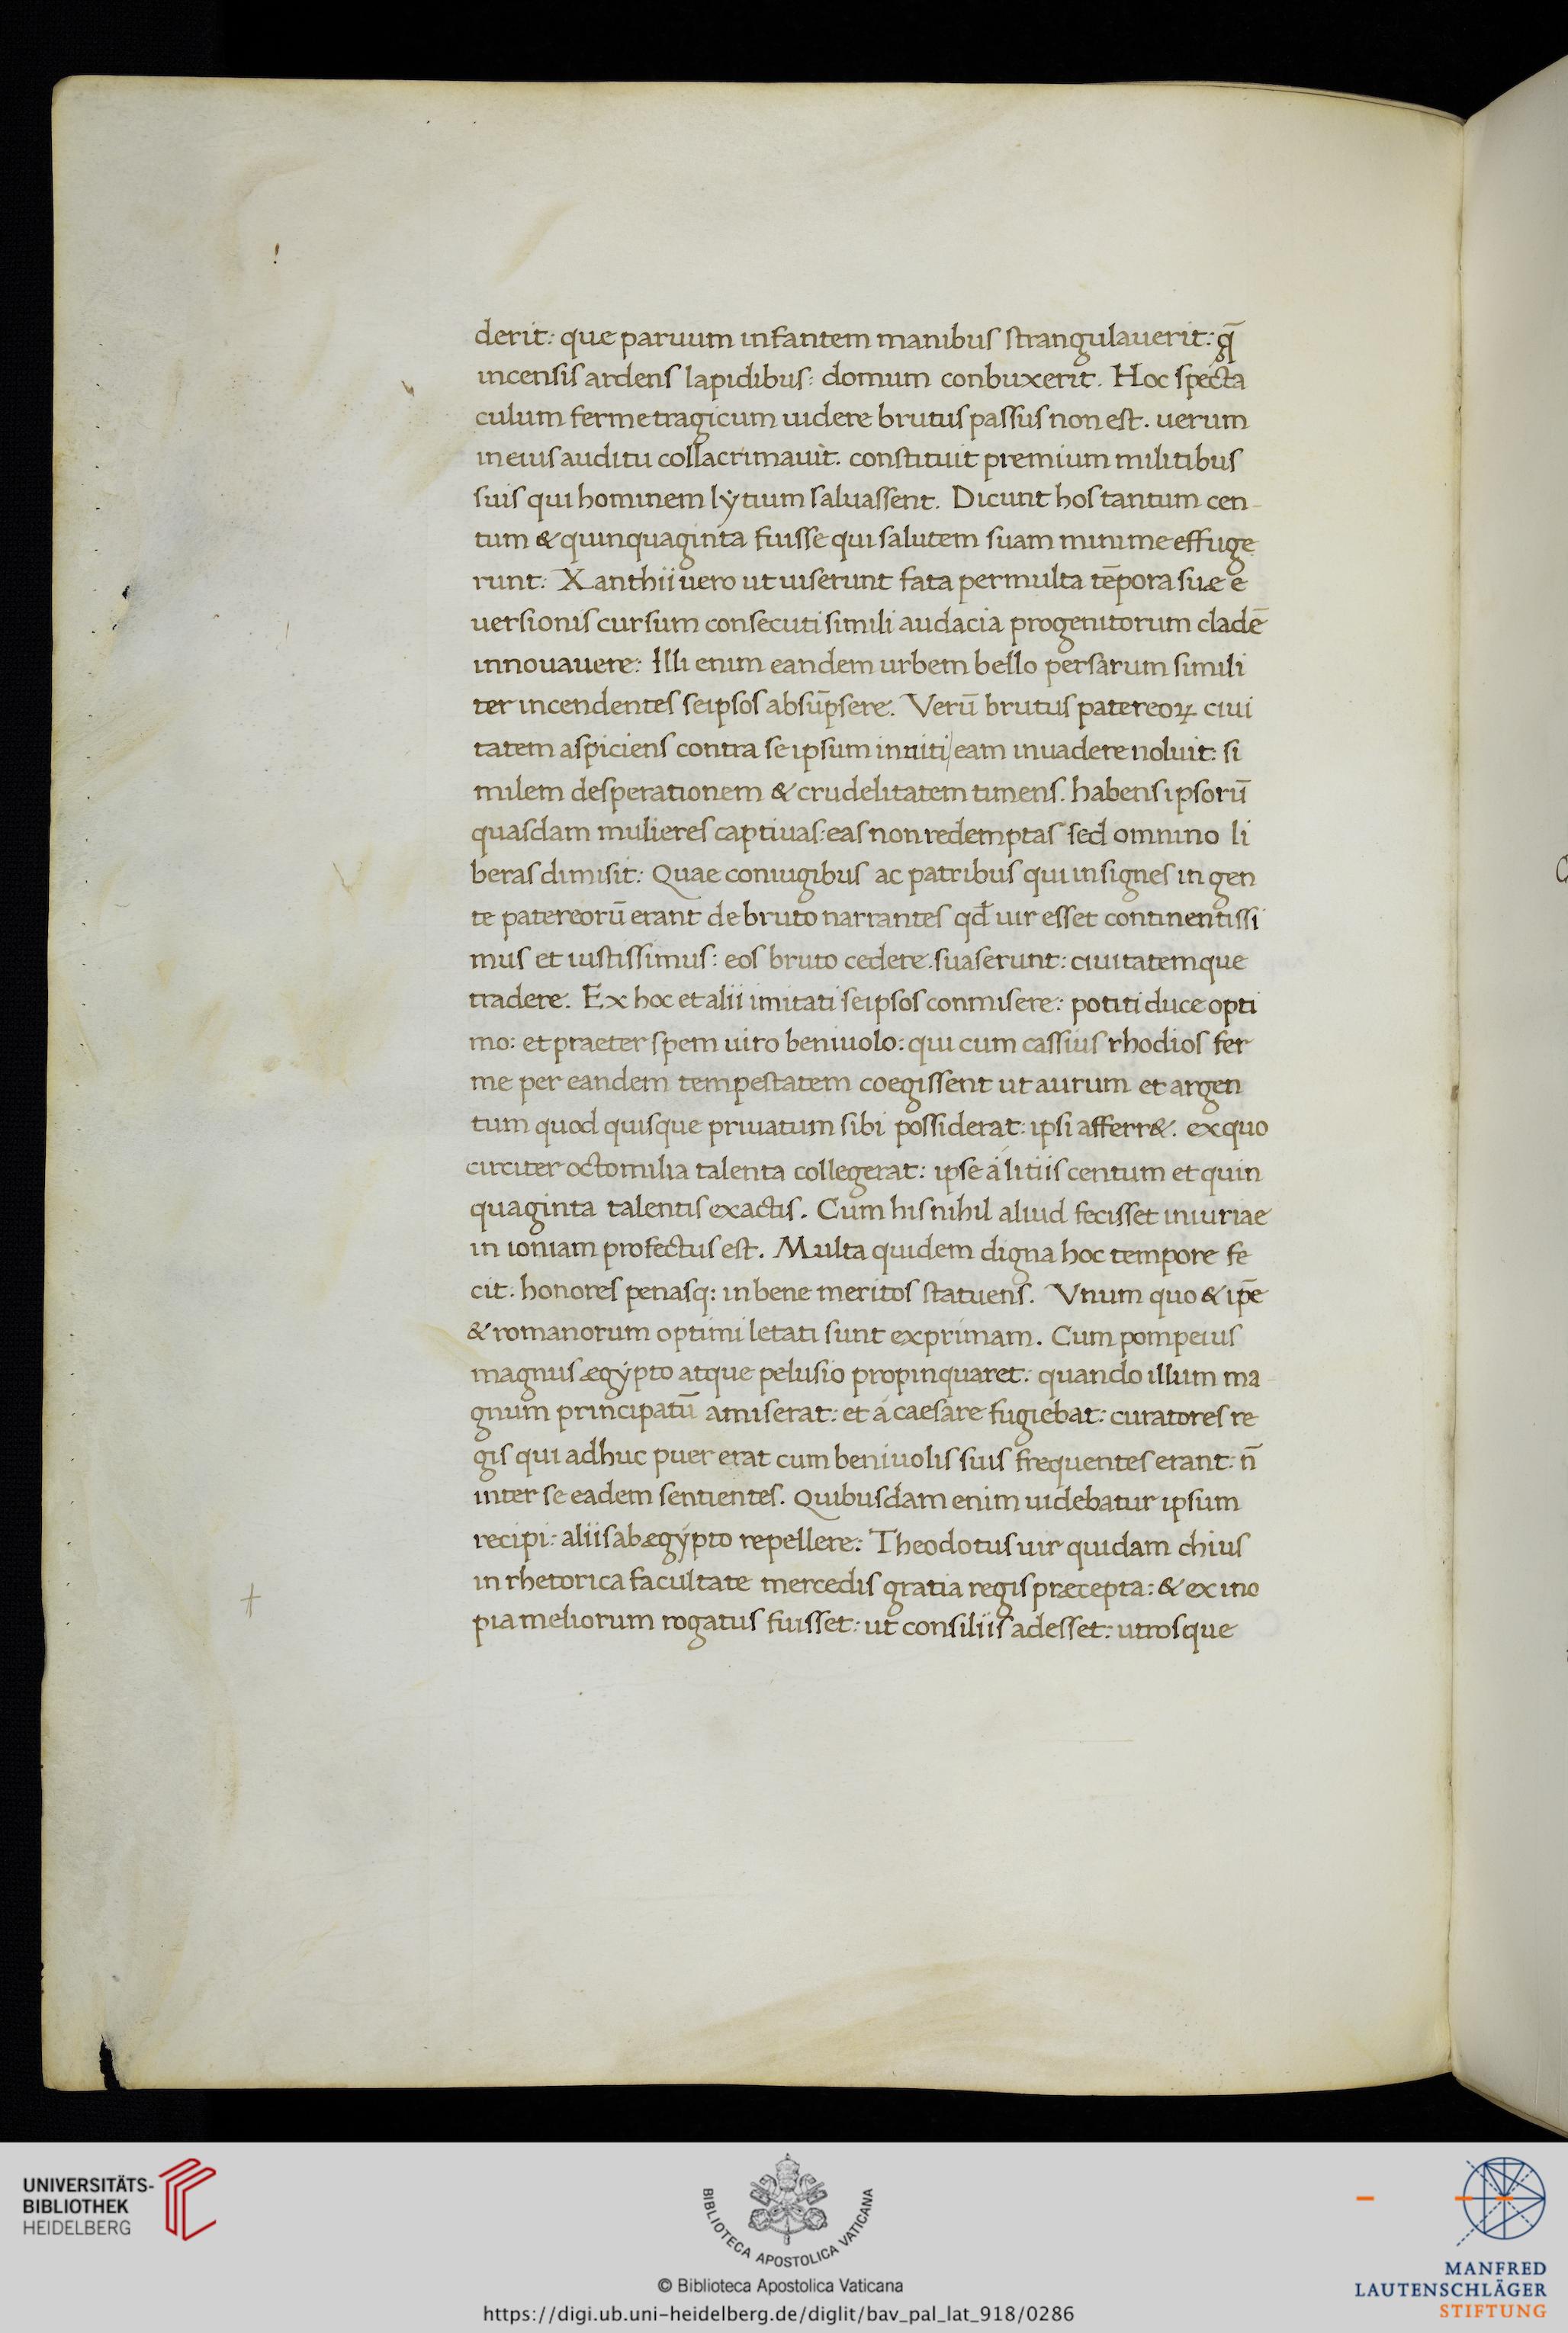 derit: que paruum infantem manibus strangulauerit: q̄
incensis ardens lapidibus: domum conbuxerit. Hoc specta
culum ferme tragicum uidere brutus passus non est. uerum
in eius auditu collacrimauit. constituit premium militibus
suis qui hominem lẏtium saluassent. Dicunt hos tantum cen-
tum & quinquaginta fuisse qui salutem suam minime effuge
runt: Xanthii uero ut uiserunt fata permulta tēpora suæ e
uersionis cursum consecuti simili audacia progenitorum cladē
innouauere: Illi enim eandem urbem bello persarum simili
ter incendentes seipsos absūpsere. Verū brutus patereoꝝ ciui
tatem aspiciens contra se ipsum inniti/ eam inuadere noluit: si
milem desperationem & crudelitatem timens. habens ipsorū
quasdam mulieres captiuas: eas non redemptas sed omnino li
beras dimisit: Quae coniugibus ac patribus qui insignes in gen
te patereorū erant de bruto narrantes qđ uir esset continentissi
mus et iustissimus: eos bruto cedere suaserunt: ciuitatemque
tradere. Ex hoc et alii imitati seipsos conmisere: potiti duce opti
mo: et praeter spem uiro beniuolo: qui cum cassius rhodios fer
me per eandem tempestatem coegissent ut aurum et argen
tum quod quisque priuatum sibi possiderat: ipsi afferr&. ex quo
circiter octomilia talenta collegerat: ipse á litiis centum et quin
quaginta talentis exactis. Cum his nihil aliud fecisset iniuriae
in ioniam profectus est. Multa quidem digna hoc tempore fe
cit: honores penasq: in bene meritos statuens. Vnum quo & ip̄e
& romanorum optimi letati sunt exprimam. Cum pompeius
magnus ægẏpto atque pelusio propinquaret: quando illum ma-
gnum principatū amiserat: et á caesare fugiebat: curatores re
gis qui adhuc puer erat cum beniuolis suis frequentes erant: n̄
inter se eadem sentientes. Quibusdam enim uidebatur ipsum
recipi: aliis ab ægẏpto repellere: Theodotus uir quidam chius
in rhetorica facultate mercedis gratia regis præcepta: & ex ino
pia meliorum rogatus fuisset: ut consiliis adesset: utrosque
UNIVERSITÄTS-
BIBLIOTHEK
HEIDELBERG
BIBLIOTECA APOSTOLICA VATICANA
© Biblioteca Apostolica Vaticana
https://digi.ub.uni-heidelberg.de/diglit/bav_pal_lat_918/0286
MANFRED
LAUTENSCHLÄGER
STIFTUNG